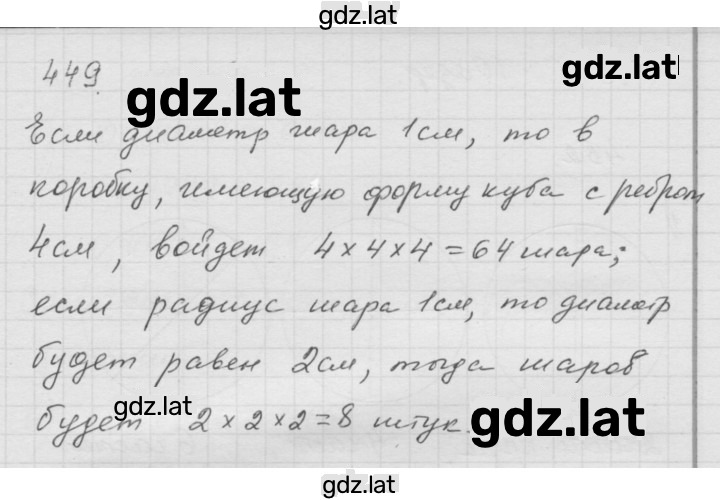 gdz.lat
449
gdz.lat
gdz.lat
Если диаметр шара 1см, то в
коробку, имеющую форму куба с ребром
4см, войдет 4×4×4=64 шара;
если радиус шара 1см, то диаметр
будет равен 2см, тогда шаров
будет 2×2×2=8 штук.
gdz.lat
gdz.lat
gdz.lat